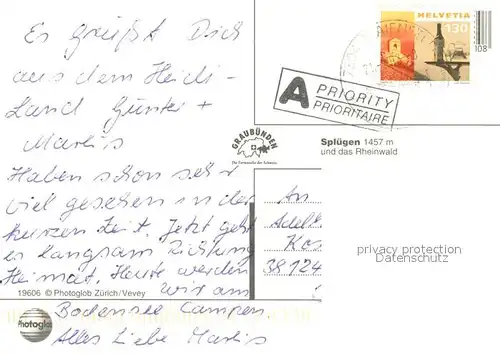 Es grüßt Dich
aus dem Heidi-
Land Günter +
Marlis
Haben schon sehr
viel gesehen in der
kurzen Zeit. Jetzt geht
es langsam Richtung
Heimat. Heute werden
wir am
Bodensee Campen
Alles Liebe Marlis
HELVETIA
130
108
A PRIORITY
PRIORITAIRE
GRAUBÜNDEN
Die Ferienecke der Schweiz.
Splügen 1457 m
und das Rheinwald
An
Adelh
Kas
38124
privacy protection
Datenschutz
19606 © Photoglob Zürich/Vevey
Photoglob